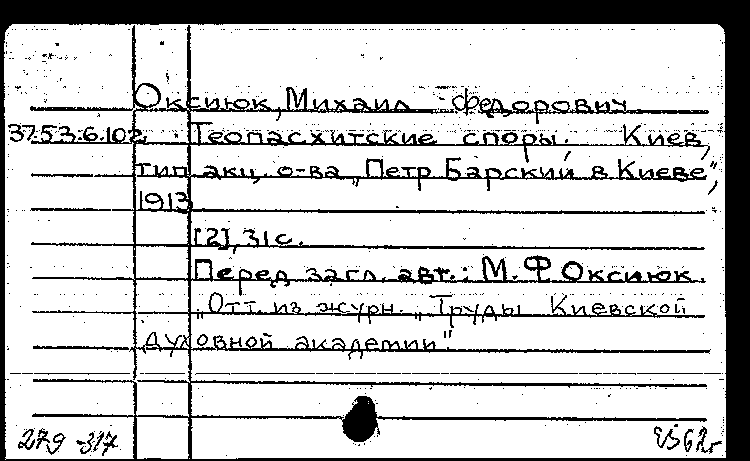 Оксиюк, Михаил Федорович
37.53.6.102. Теопасхитские споры. Киев,
тип. акц. о-ва „Петр Барский в Киеве",
1913
[2], 31 с.
Перед загл. авт.: М. Ф Оксиюк.
„Отт. из журн. „Труды Киевской
духовной академии"
279 -317